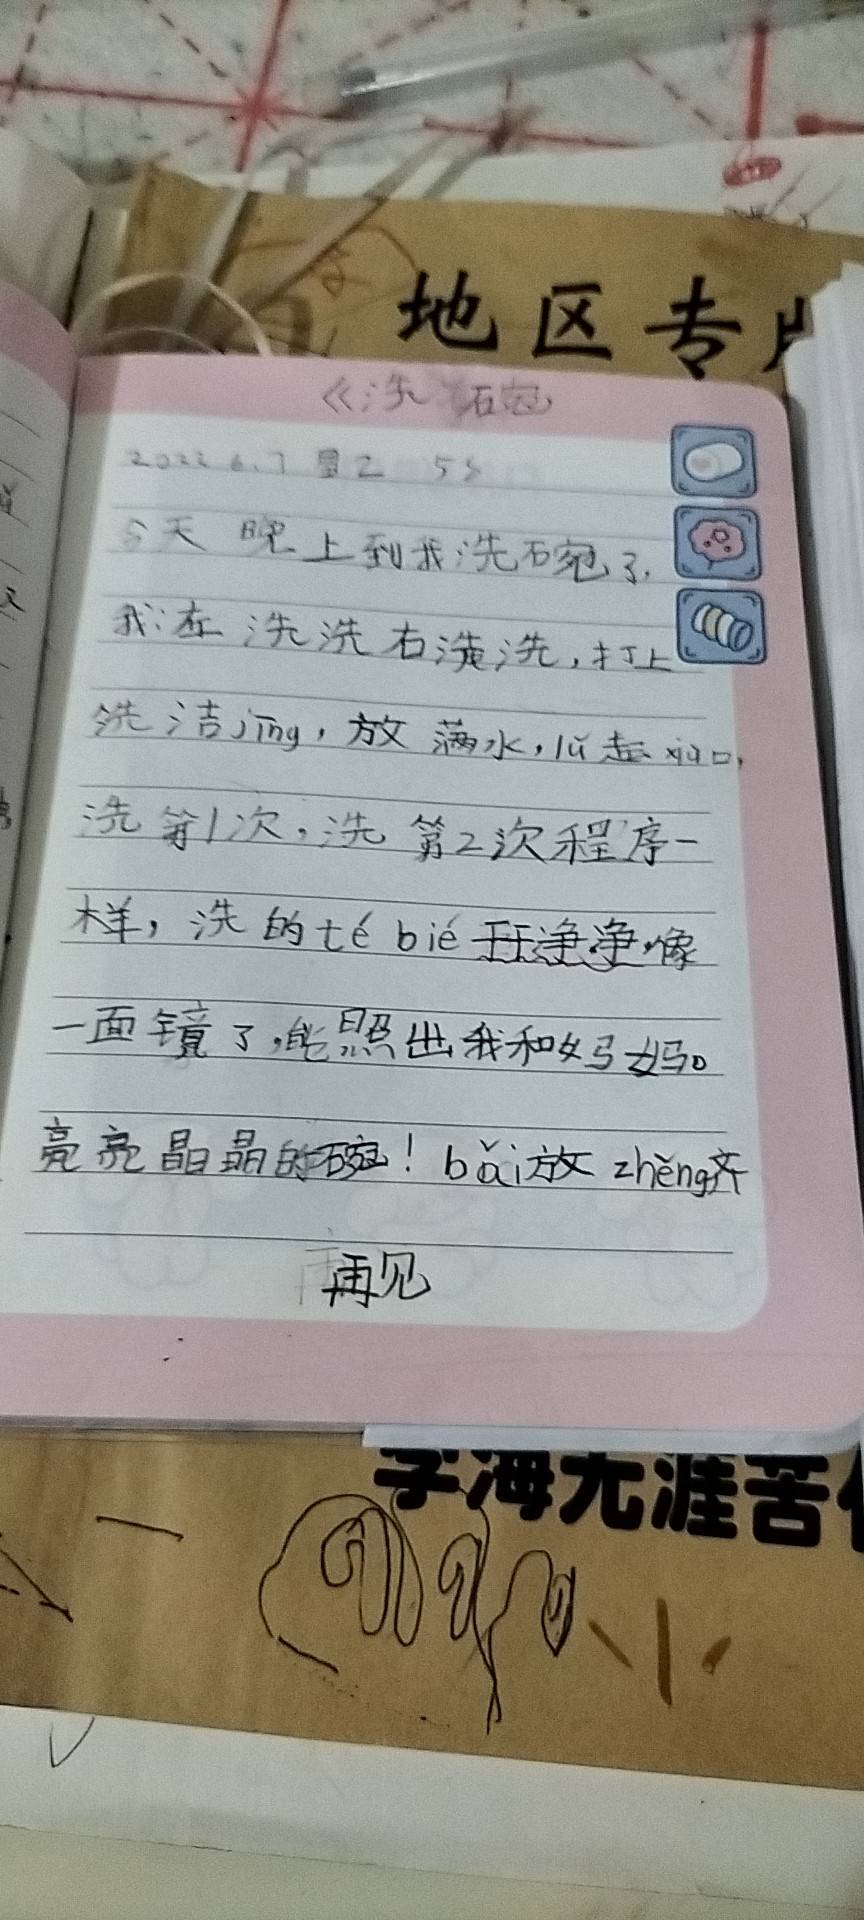 地区专
《洗碗》
2022 6.7 星2
5天 晚上到我洗碗了,
我在 洗洗 洗,打上
洗洁jīng,放满水,lǜ起xiao,
洗第1次,洗第2次程序一
样,洗的té bié 干净净,像
一面镜了,能照出我和妈妈。
亮亮晶晶的碗!bǎi放zhěng齐
再见
学海无涯苦